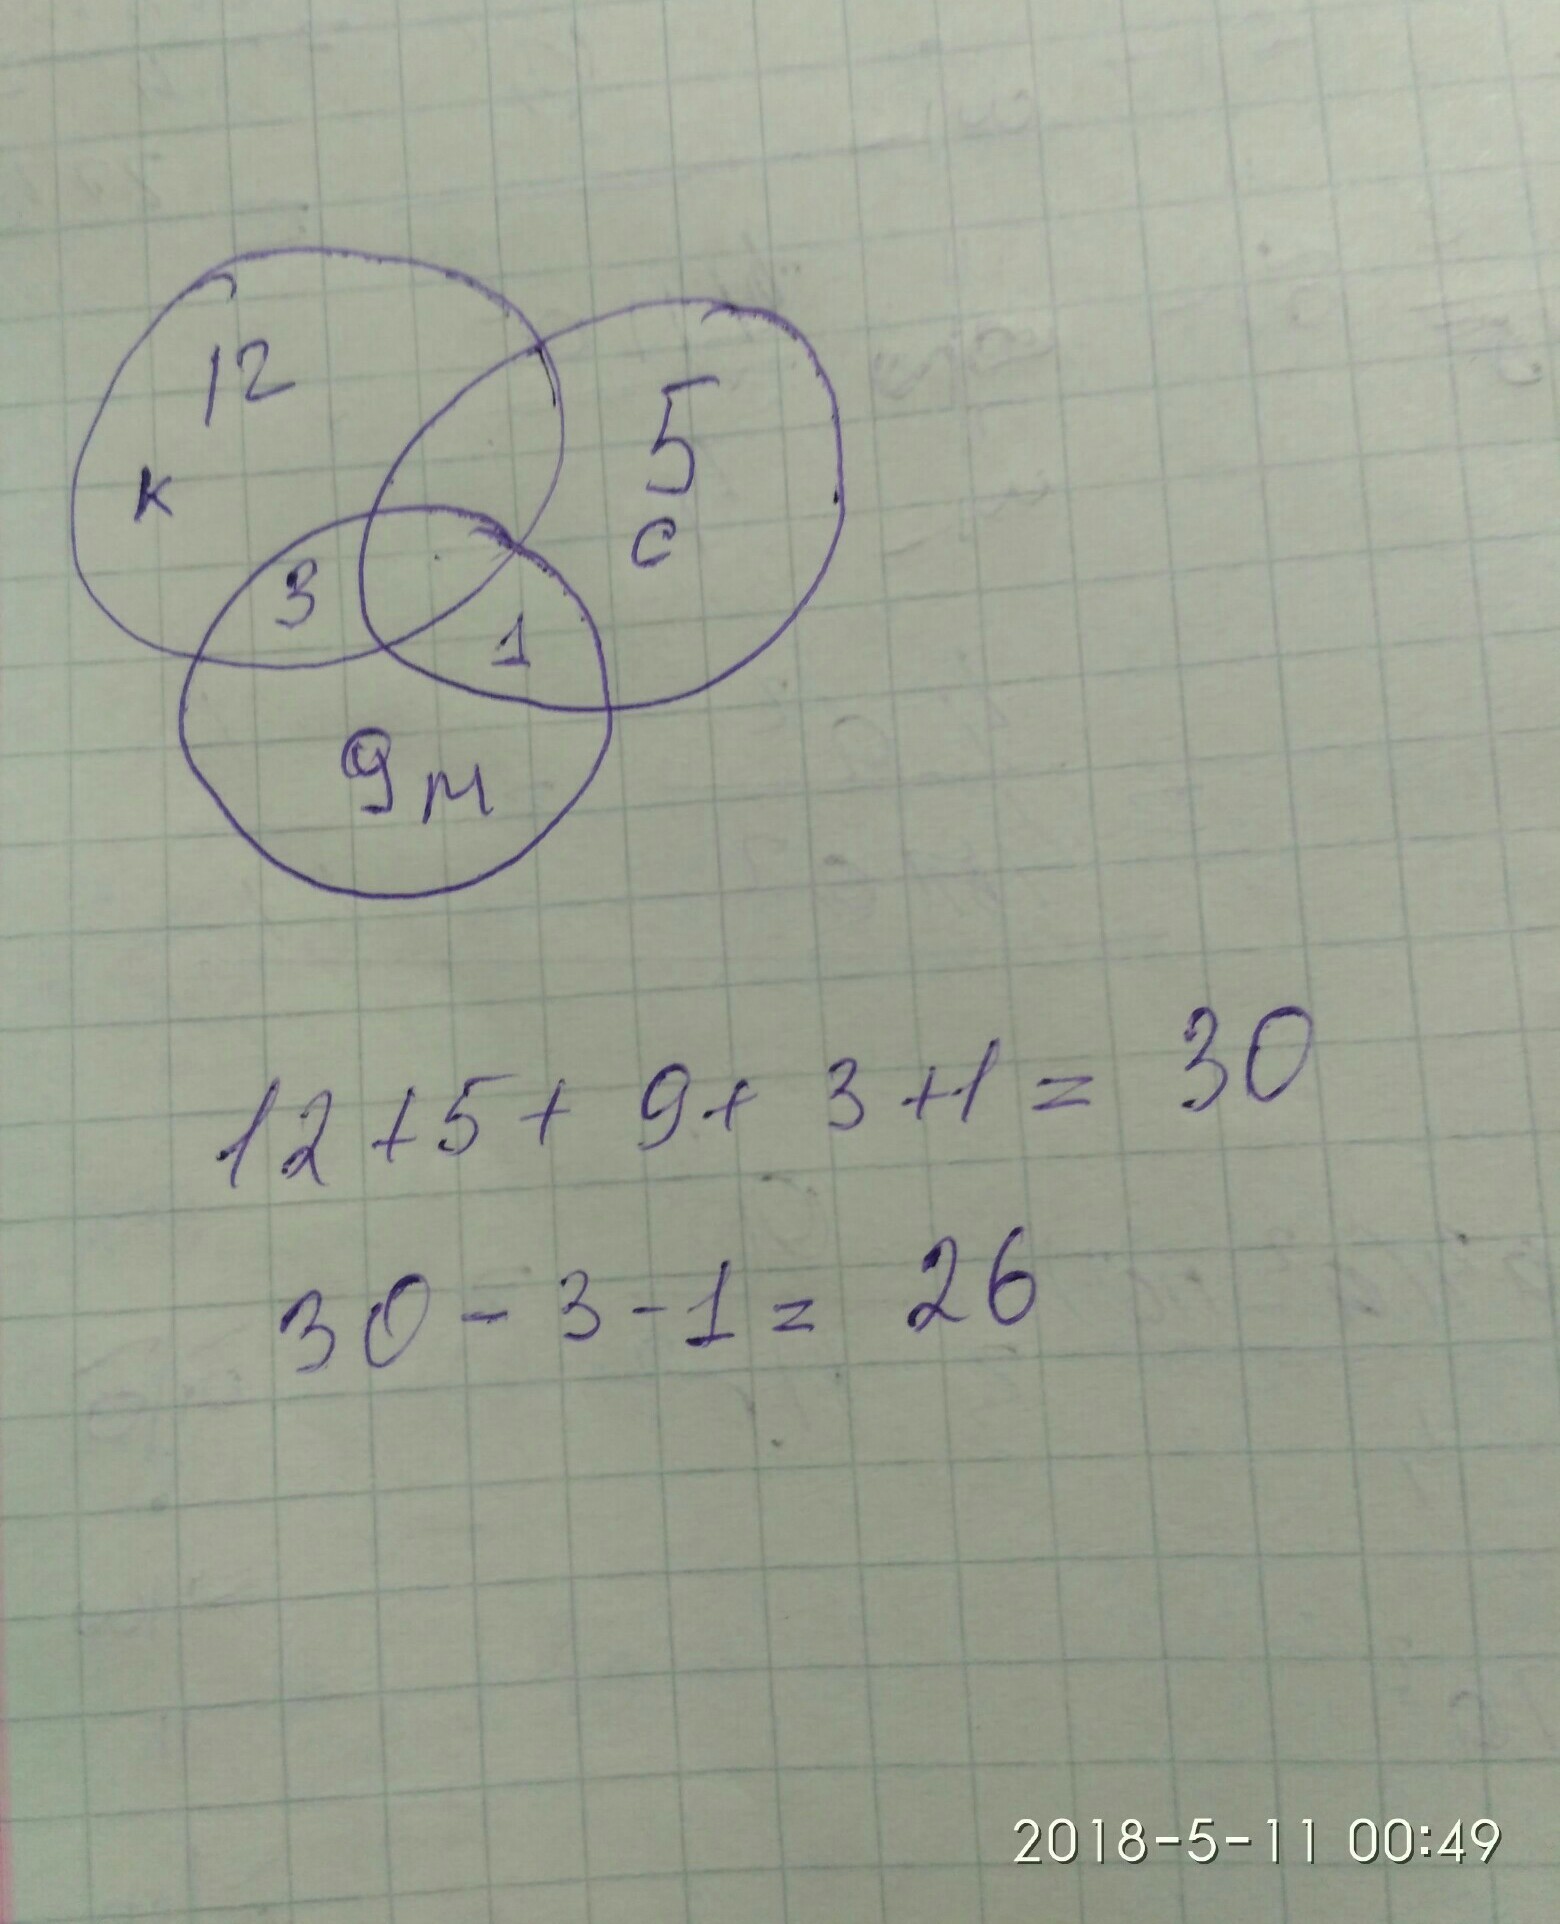 12
5
к
с
3
1
9 м
12 + 5 + 9 + 3 + 1 = 30
30 - 3 - 1 = 26
2018-5-11 00:49